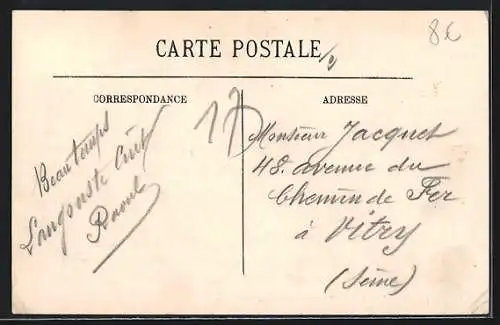 8€
CARTE POSTALE
CORRESPONDANCE
ADRESSE
17
Beau temps
Langouste Cuit
Raoul
Monsieur Jacquet
48. avenue du
Chemin de Fer
à Vitry
(Seine)